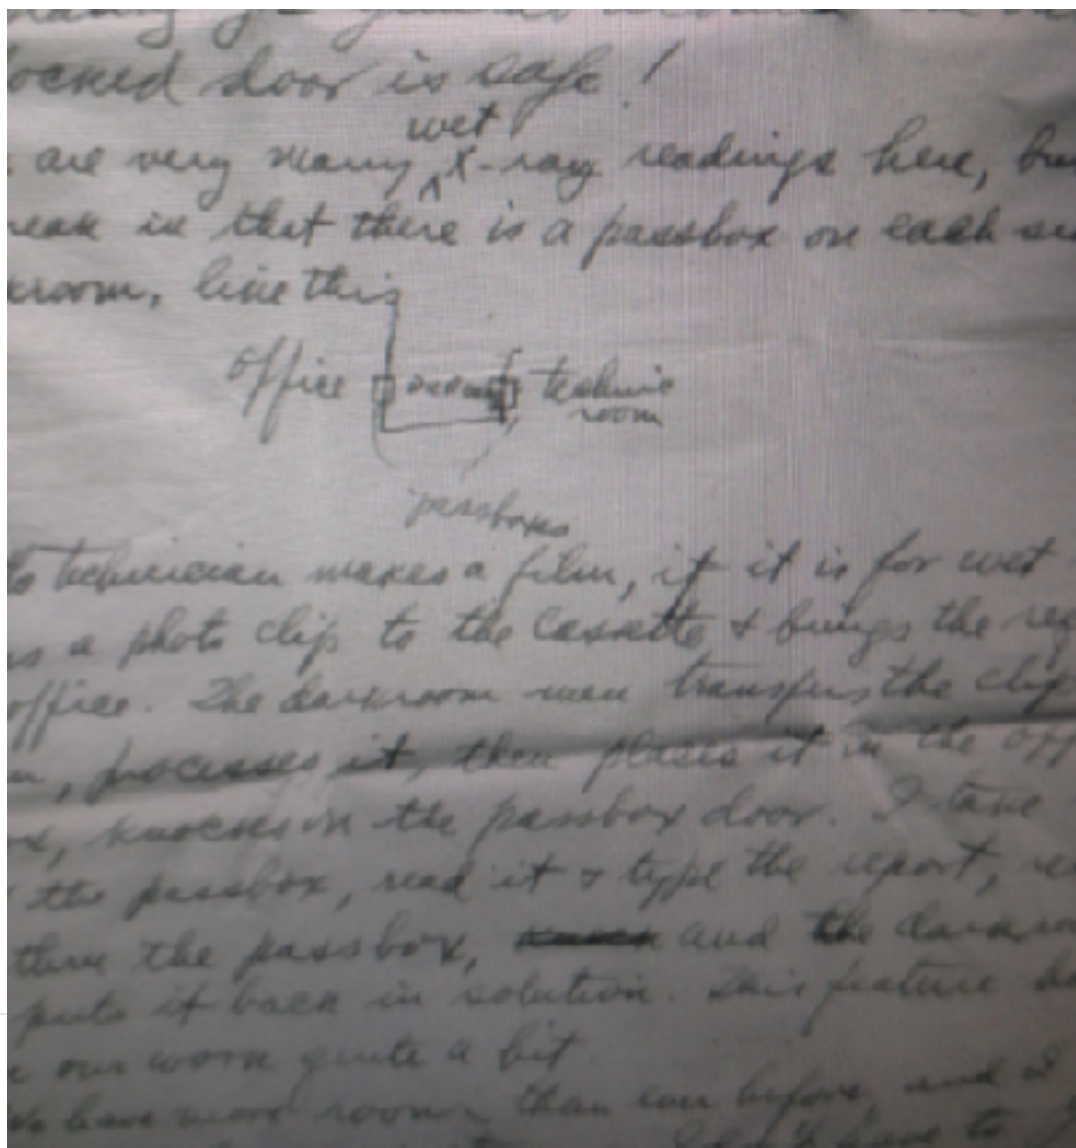 ocked door is safe!
wet
are very many x-ray readings here, bu
reak in that there is a passbox on each si
kroom, like this
office technic
room
passboxes
technician makes a film, if it is for wet
s a photo clip to the cassette & brings the req
office. The darkroom man transfers the clip
, processes it, then places it in the off
ox, knocks on the passbox door. I take
the passbox, read it & type the report, re
thru the passbox, and the darkroo
puts it back in solution. This feature ha
our work quite a bit
have more room than ever before, and